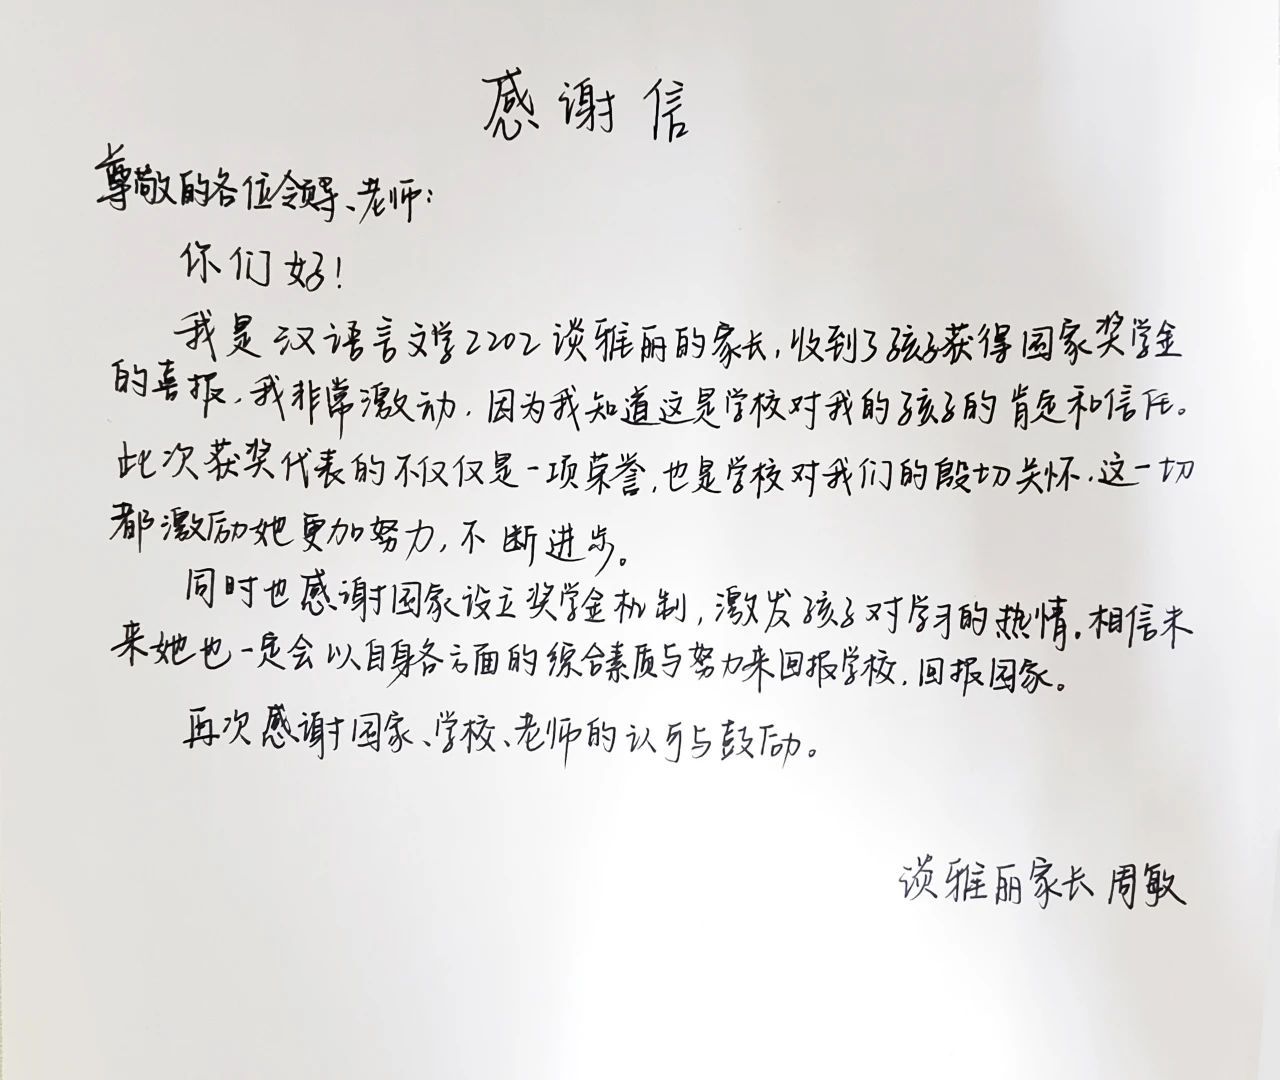 感谢信
尊敬的各位领导、老师：
你们好！
我是汉语言文学2202谈雅丽的家长，收到了孩子获得国家奖学金
的喜报，我非常激动，因为我知道这是学校对我的孩子的肯定和信任。
此次获奖代表的不仅仅是一项荣誉，也是学校对我们的殷切关怀，这一切
都激励她更加努力，不断进步。
同时也感谢国家设立奖学金机制，激发孩子对学习的热情，相信未
来她也一定会以自身各方面的综合素质与努力来回报学校，回报国家。
再次感谢国家、学校、老师的认可与鼓励。
谈雅丽家长 周敏